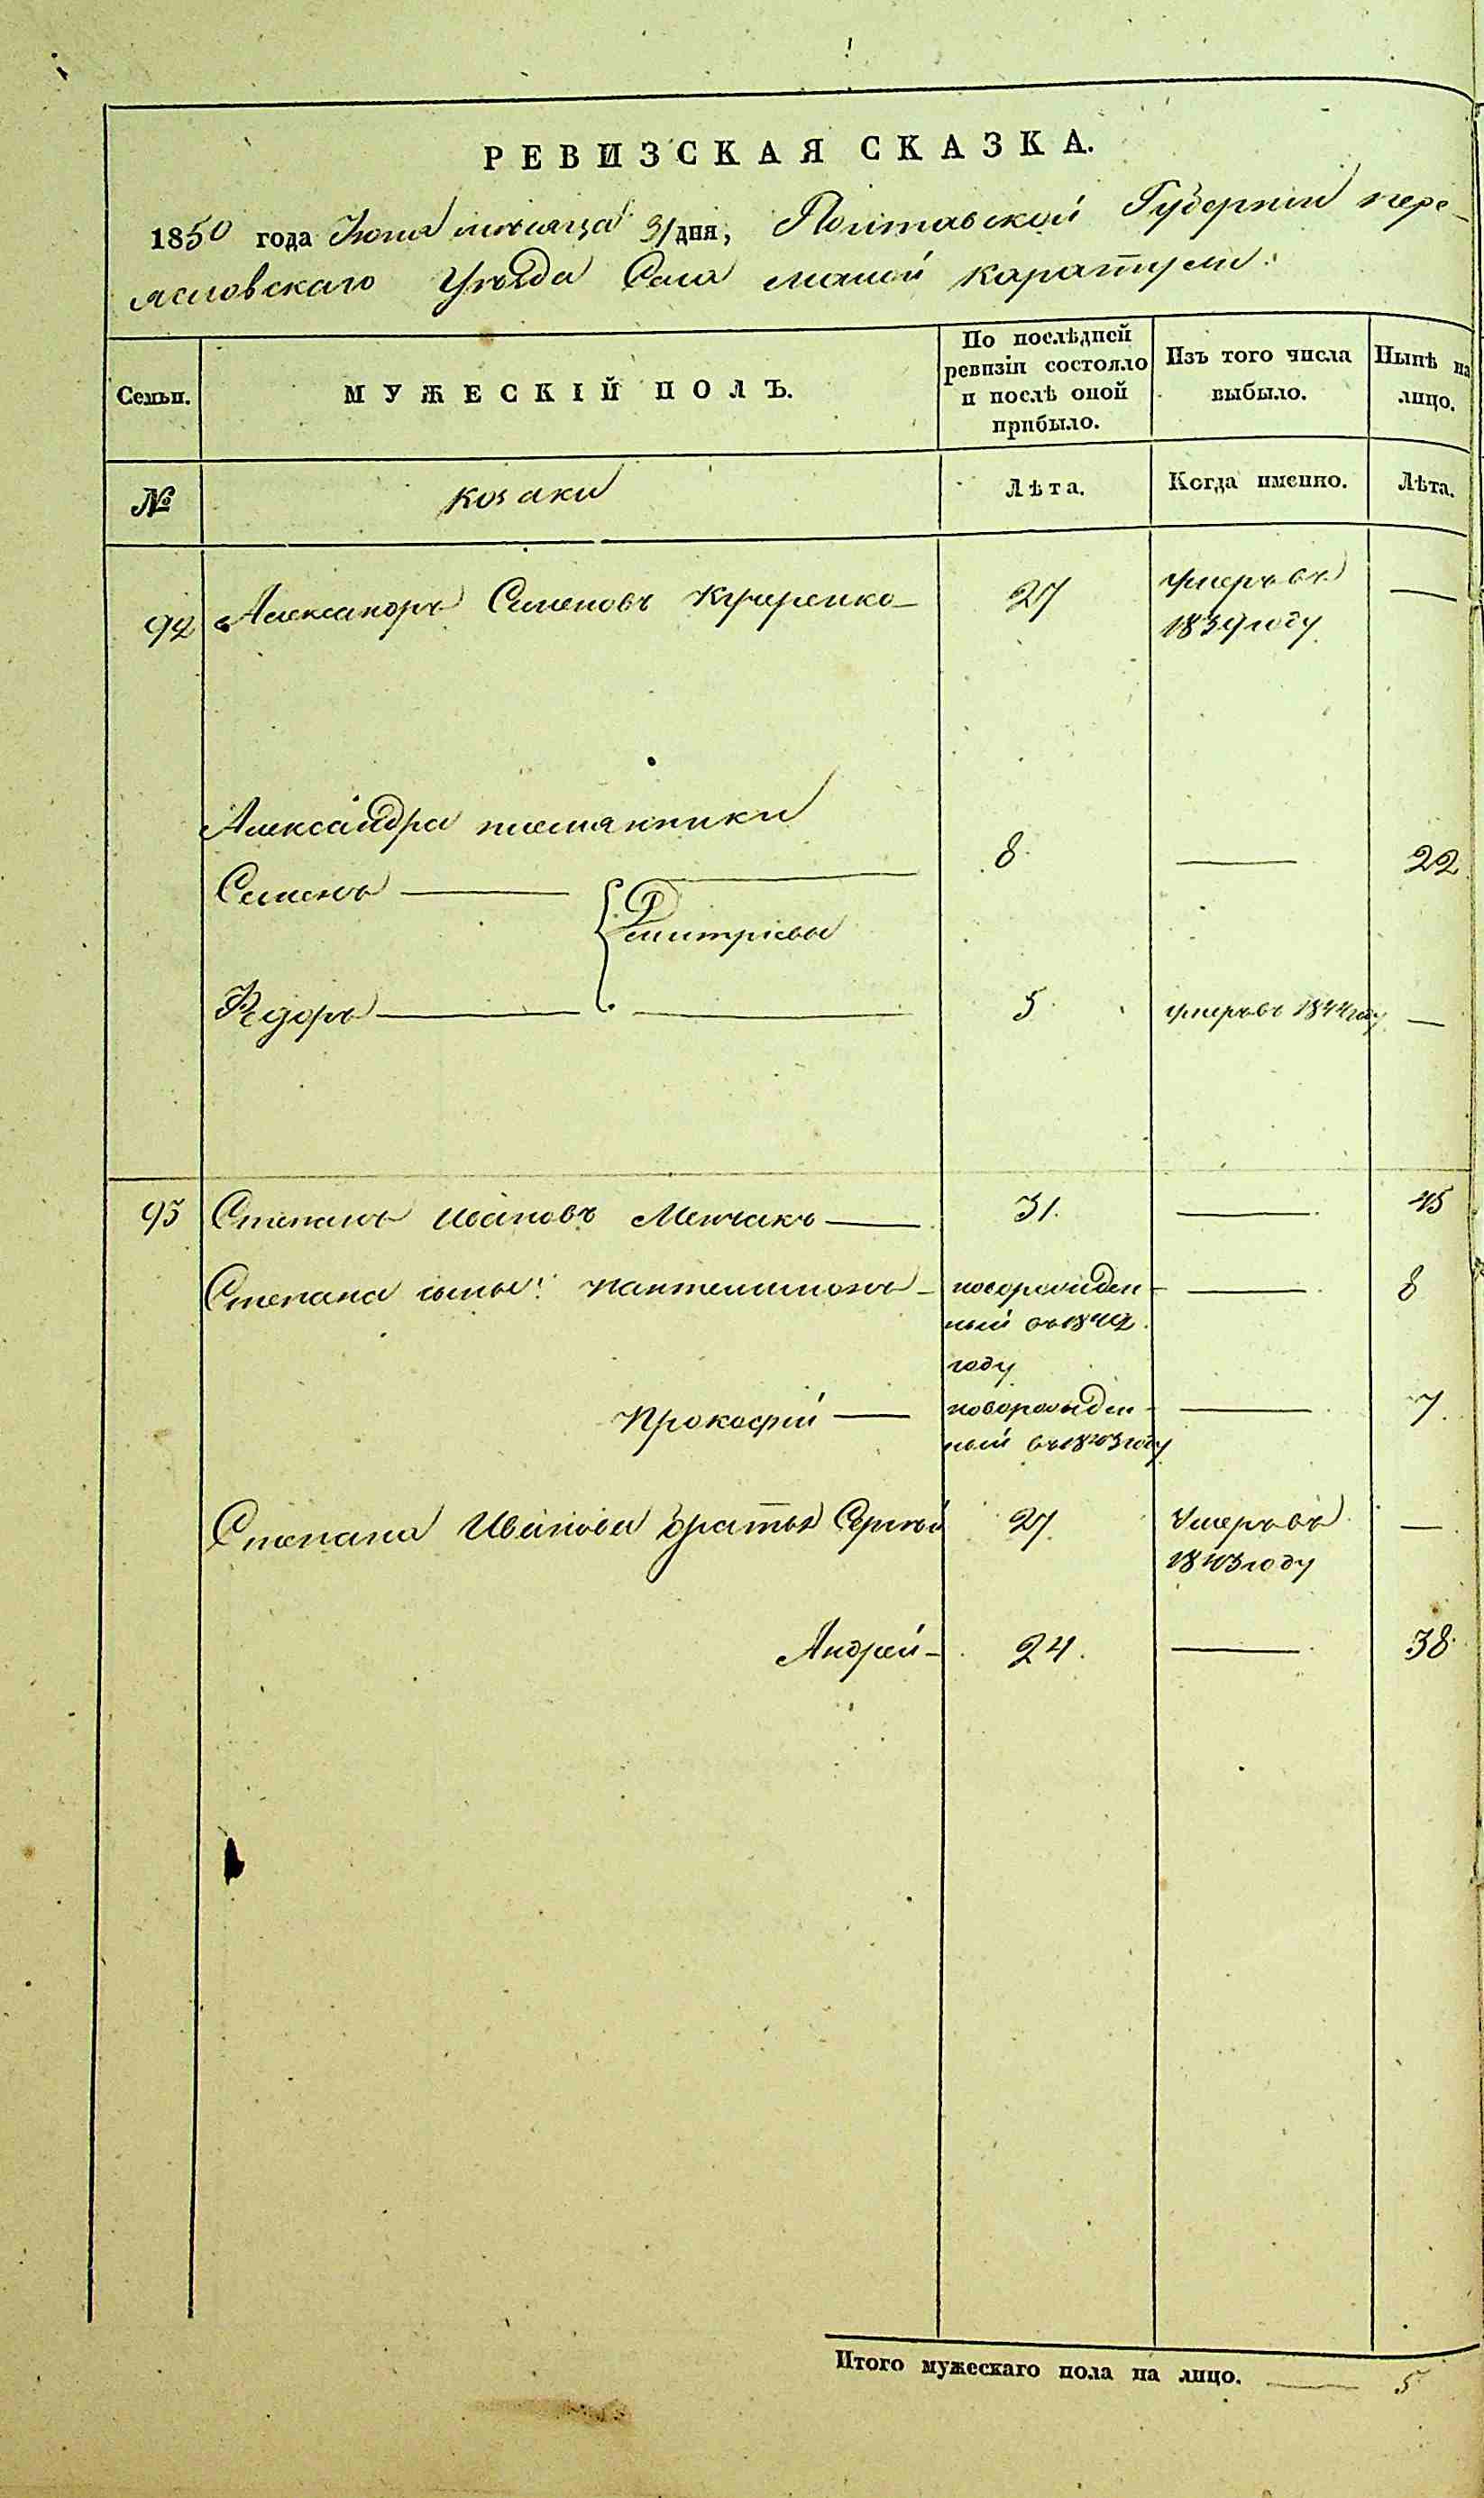 РЕВИЗСКАЯ СКАЗКА.
1850 года Іюня мѣсяца 31 дня, Полтавской Губерніи пере-
яславскаго Уѣзда Села малой каратули.
Семьи.
МУЖЕСКІЙ ПОЛЪ.
По послѣдней
ревизіи состояло
и послѣ оной
прибыло.
Изъ того числа
выбыло.
Нынѣ на
лицо.
№
козаки
Лѣта.
Когда именно.
Лѣта.
92 Александръ Семеновъ Кучеренко 27 умеръ въ —
1839 году
Александра племянники
Семенъ — 8 — 22
Дмитріевы
Ѳедоръ — 5 умеръ въ 1844 году —
93 Степанъ Ивановъ Менчакъ — 31. — 45
Степана сыны: Пантелимонъ — новорожден- — 8
ный въ 1842
году
Прокофій — новорожден- — 7.
ный въ 1843 году
Степана Иванова братья Сергѣй 27 Умеръ въ —
1843 году
Андрей — 24. — 38
Итого мужескаго пола на лицо. — 5